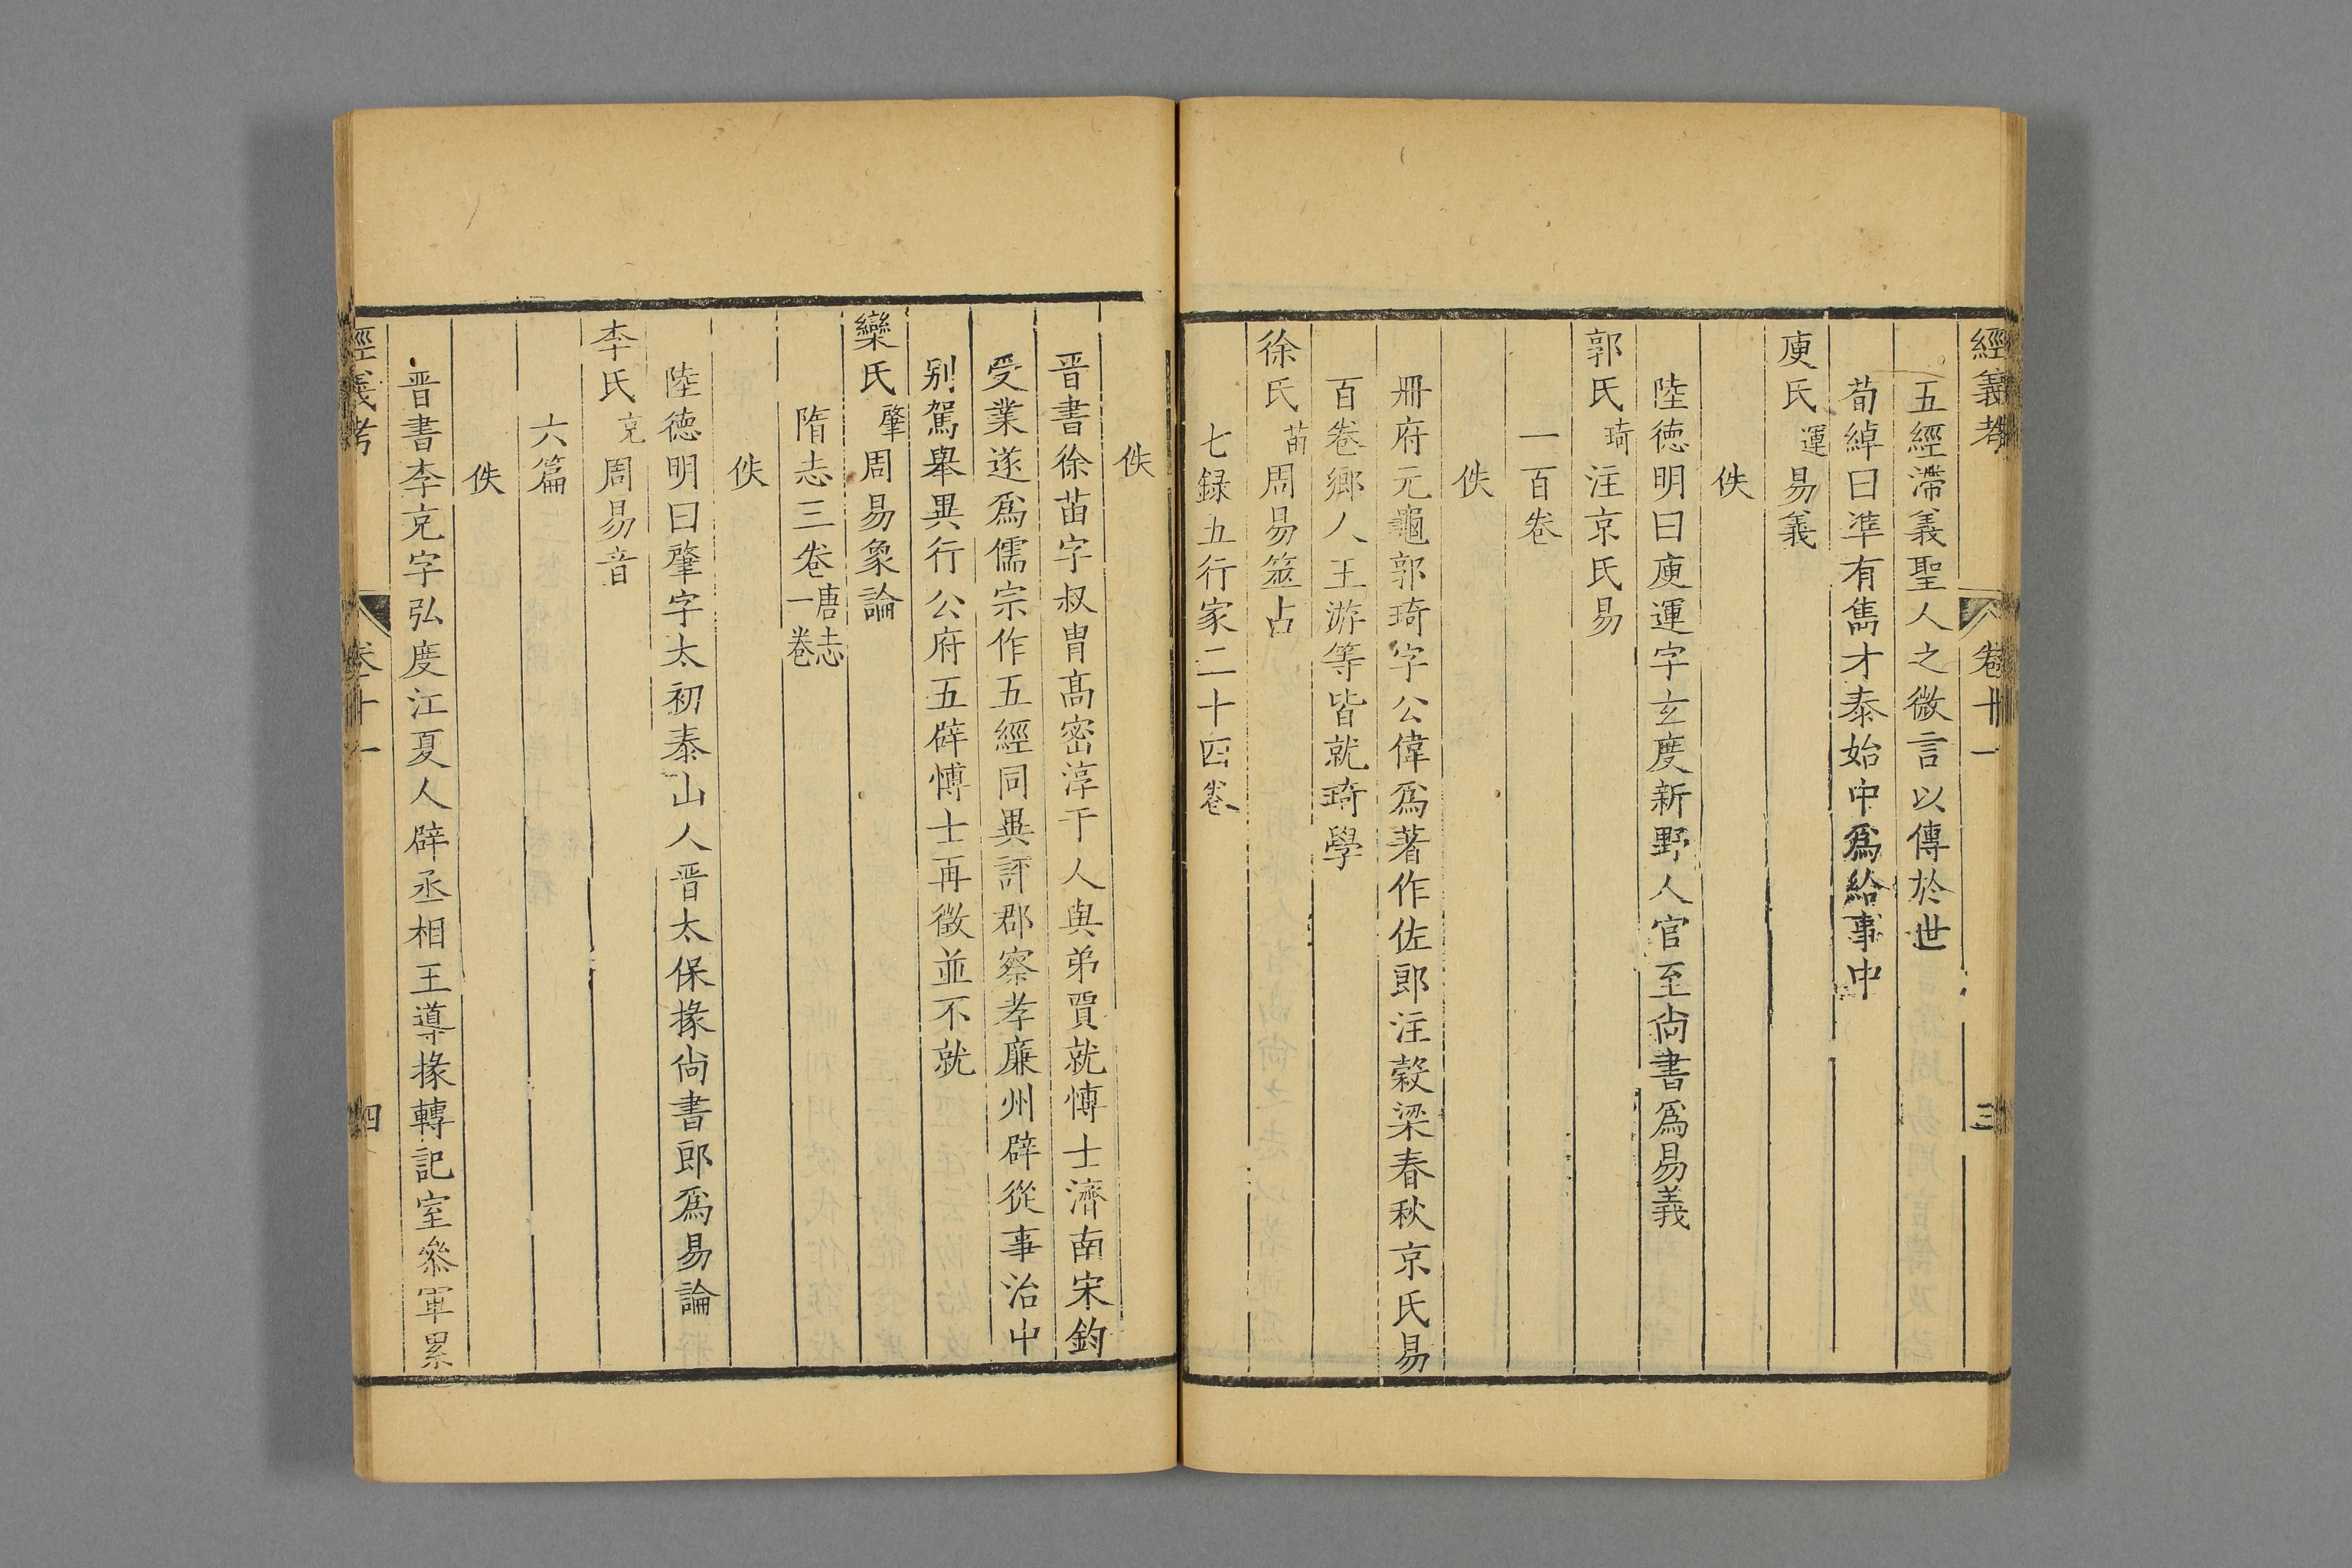 經義考 卷十一 三
五經滯義聖人之微言以傳於世
荀綽曰準有雋才泰始中爲給事中
庾氏運易義
佚
陸德明曰庾運字玄度新野人官至尚書爲易義
郭氏琦注京氏易
一百卷
佚
冊府元龜郭琦字公偉爲著作佐郎注穀梁春秋京氏易
百卷鄉人王游等皆就琦學
徐氏苗周易筮占
七録五行家二十四卷
佚
晋書徐苗字叔胄髙密淳于人與弟賈就愽士濟南宋鈞
受業遂爲儒宗作五經同異評郡察孝廉州辟從事治中
别駕舉異行公府五辟愽士再徵並不就
欒氏肇周易象論
隋志三卷唐志一卷
佚
陸德明曰肇字太初泰山人晋太保掾尚書郎爲易論
李氏充周易音
六篇
佚
晋書李充字弘度江夏人辟丞相王導掾轉記室叅軍累
經義考 卷十一 四